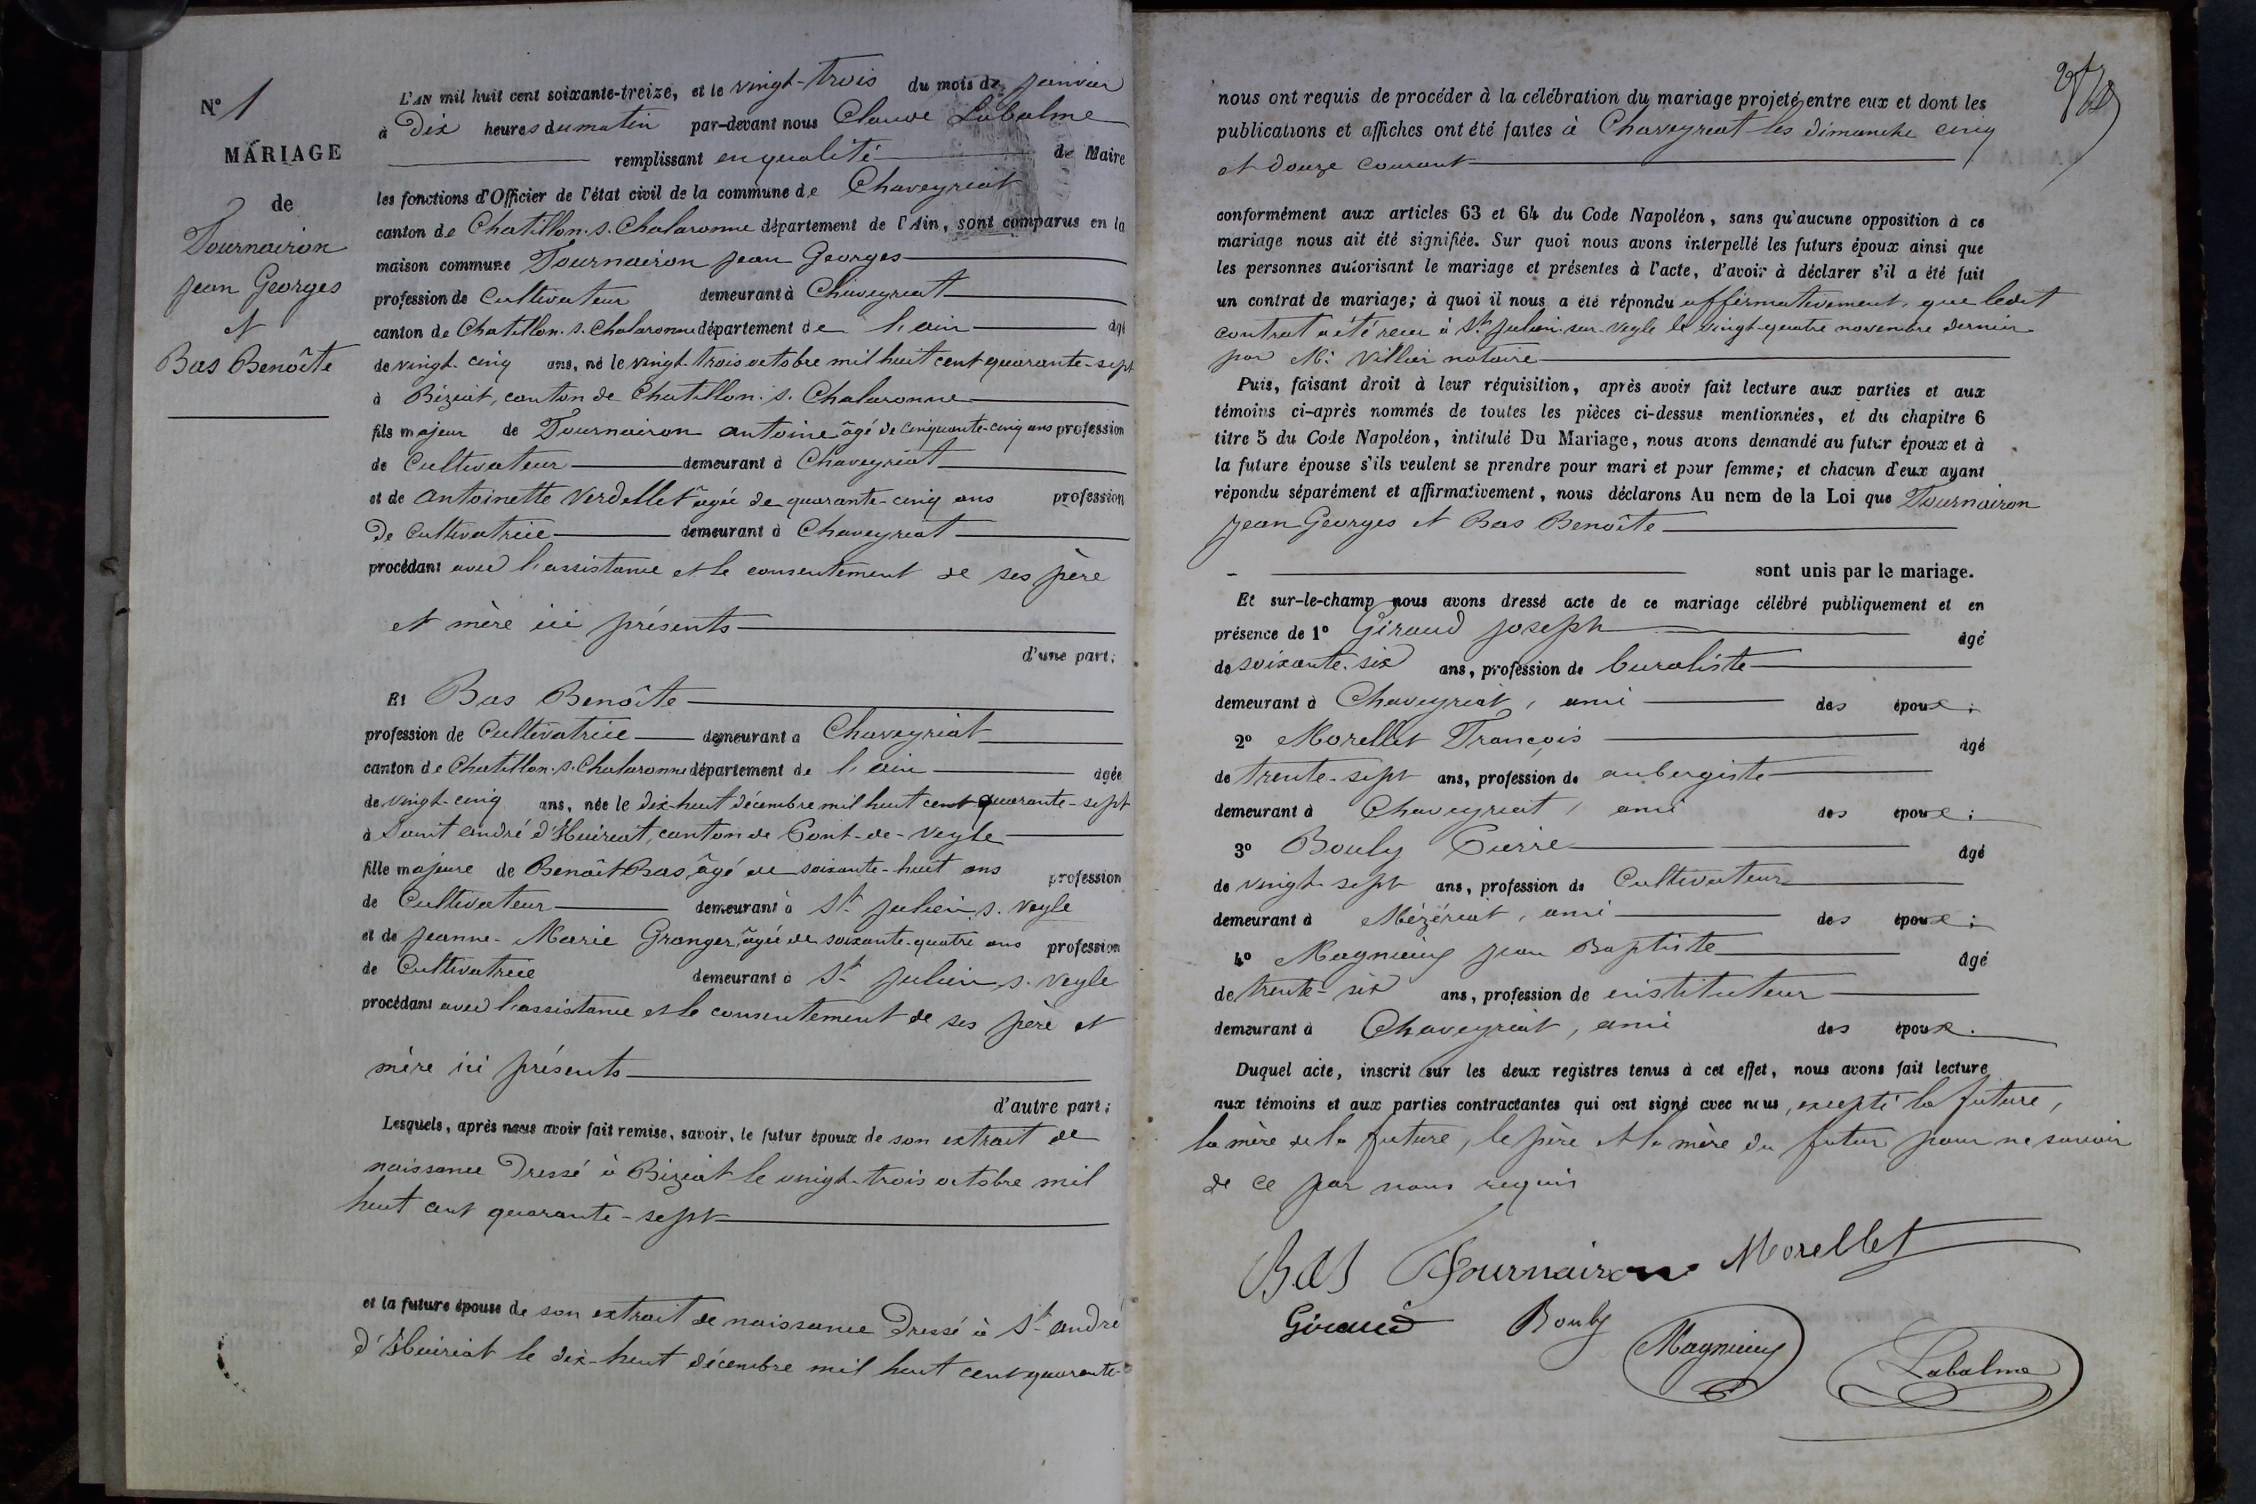 N° 1
MARIAGE
de
Tournairon
jean Georges
et
Bas Benoîte
L'AN mil huit cent soixante-treize, et le vingt-trois du mois de janvier
à Dix heures du matin par-devant nous Claude Labalme
remplissant en qualité de Maire
les fonctions d'Officier de l'état civil de la commune de Chaveyriat
canton de Chatillon-s-Chalaronne département de l'Ain, sont comparus en la
maison commune Tournairon jean Georges
profession de Cultivateur demeurant à Chaveyriat
canton de Chatillon-s-Chalaronne département de l'ain âgé
de vingt-cinq ans, né le vingt-trois octobre mil huit cent quarante-sept
à Biziat, canton de Chatillon-s-Chalaronne
fils majeur de Tournairon antoine âgé de cinquante-cinq ans profession
de Cultivateur demeurant à Chaveyriat
et de antoinette Verdellet âgée de quarante-cinq ans profession
De Cultivatrice demeurant à Chaveyriat
procédant avec l'assistance et le consentement de ses père
et mère ici présents
d'une part;
Et Bas Benoîte
profession de Cultivatrice demeurant à Chaveyriat
canton de Chatillon-s-Chalaronne département de l'ain âgée
de vingt-cinq ans, née le dix-huit décembre mil huit cent quarante-sept
à Saint andré d'Huiriat, canton de Pont-de-Veyle
fille majeure de Benoît Bas, âgé de soixante-huit ans profession
de Cultivateur demeurant à St julien s. Veyle
et de jeanne-Marie Granger, âgée de soixante-quatre ans profession
de Cultivatrice demeurant à St julien s. Veyle
procédant avec l'assistance et le consentement de ses père et
mère ici présents
d'autre part;
Lesquels, après nous avoir fait remise, savoir, le futur époux de son extrait de
naissance Dressé à Biziat le vingt-trois octobre mil
huit cent quarante-sept
et la future épouse de son extrait de naissance Dressé à St andré
d'Huiriat le dix-huit décembre mil huit cent quarante-
nous ont requis de procéder à la célébration du mariage projeté entre eux et dont les
publications et affiches ont été faites à Chaveyriat les dimanche cinq
et douze courant
conformément aux articles 63 et 64 du Code Napoléon, sans qu'aucune opposition à ce
mariage nous ait été signifiée. Sur quoi nous avons interpellé les futurs époux ainsi que
les personnes autorisant le mariage et présentes à l'acte, d'avoir à déclarer s'il a été fait
un contrat de mariage; à quoi il nous a été répondu affirmativement, que ledit
contrat a été reçu à St julien-sur-Veyle le vingt-quatre novembre dernier
par Me Villier notaire
Puis, faisant droit à leur réquisition, après avoir fait lecture aux parties et aux
témoins ci-après nommés de toutes les pièces ci-dessus mentionnées, et du chapitre 6
titre 5 du Code Napoléon, intitulé Du Mariage, nous avons demandé au futur époux et à
la future épouse s'ils veulent se prendre pour mari et pour femme; et chacun d'eux ayant
répondu séparément et affirmativement, nous déclarons Au nom de la Loi que Tournairon
jean Georges et Bas Benoîte
sont unis par le mariage.
Et sur-le-champ nous avons dressé acte de ce mariage célébré publiquement et en
présence de 1° Giraud joseph âgé
de soixante-six ans, profession de buraliste
demeurant à Chaveyriat, ami des époux;
2° Morellet François âgé
de trente-sept ans, profession de aubergiste
demeurant à Chaveyriat, ami des époux;
3° Bouly Pierre âgé
de vingt-sept ans, profession de Cultivateur
demeurant à Mézériat, ami des époux;
4° Magnieny jean Baptiste âgé
de trente-six ans, profession de instituteur
demeurant à Chaveyriat, ami des époux.
Duquel acte, inscrit sur les deux registres tenus à cet effet, nous avons fait lecture
aux témoins et aux parties contractantes qui ont signé avec nous, excepté la future,
la mère de la future, le père et la mère du futur pour ne savoir
de ce par nous requis
BAS Tournairon Morellet
Giraud Bouly
Magnieny Labalme